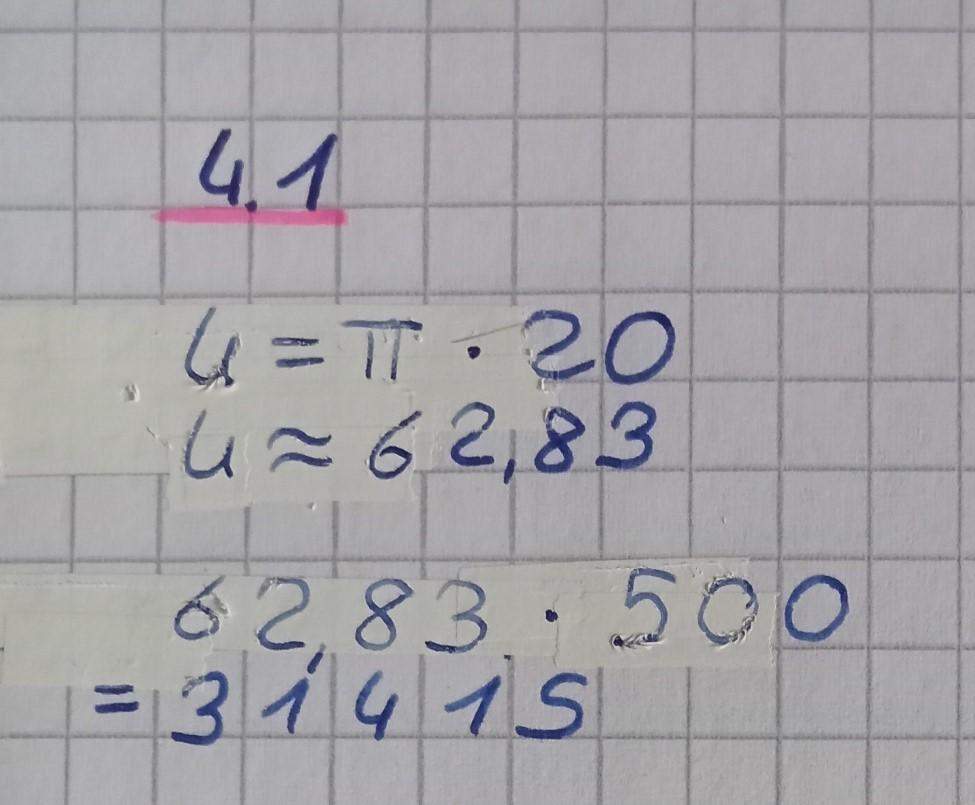 4.1
u = π · 20
u ≈ 62,83
62,83 · 500
= 31415